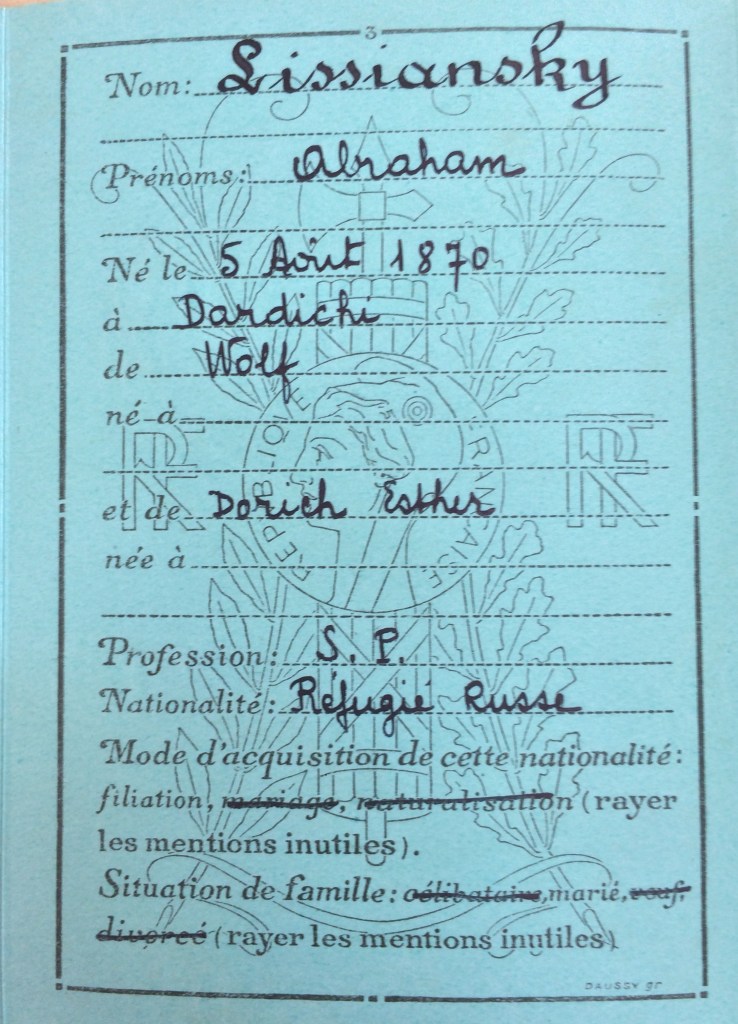 3
Nom: Lissiansky
Prénoms: Abraham
Né le 5 Août 1870
à Dardichi
de Wolf
né à
RF RF
REPUBLIQUE FRANÇAISE
et de Dorich Esther
née à
Profession: S. P.
Nationalité: Réfugié Russe
Mode d'acquisition de cette nationalité:
filiation, mariage, naturalisation (rayer
les mentions inutiles).
Situation de famille: célibataire, marié, veuf,
divorcé (rayer les mentions inutiles)
DAUSSY gr